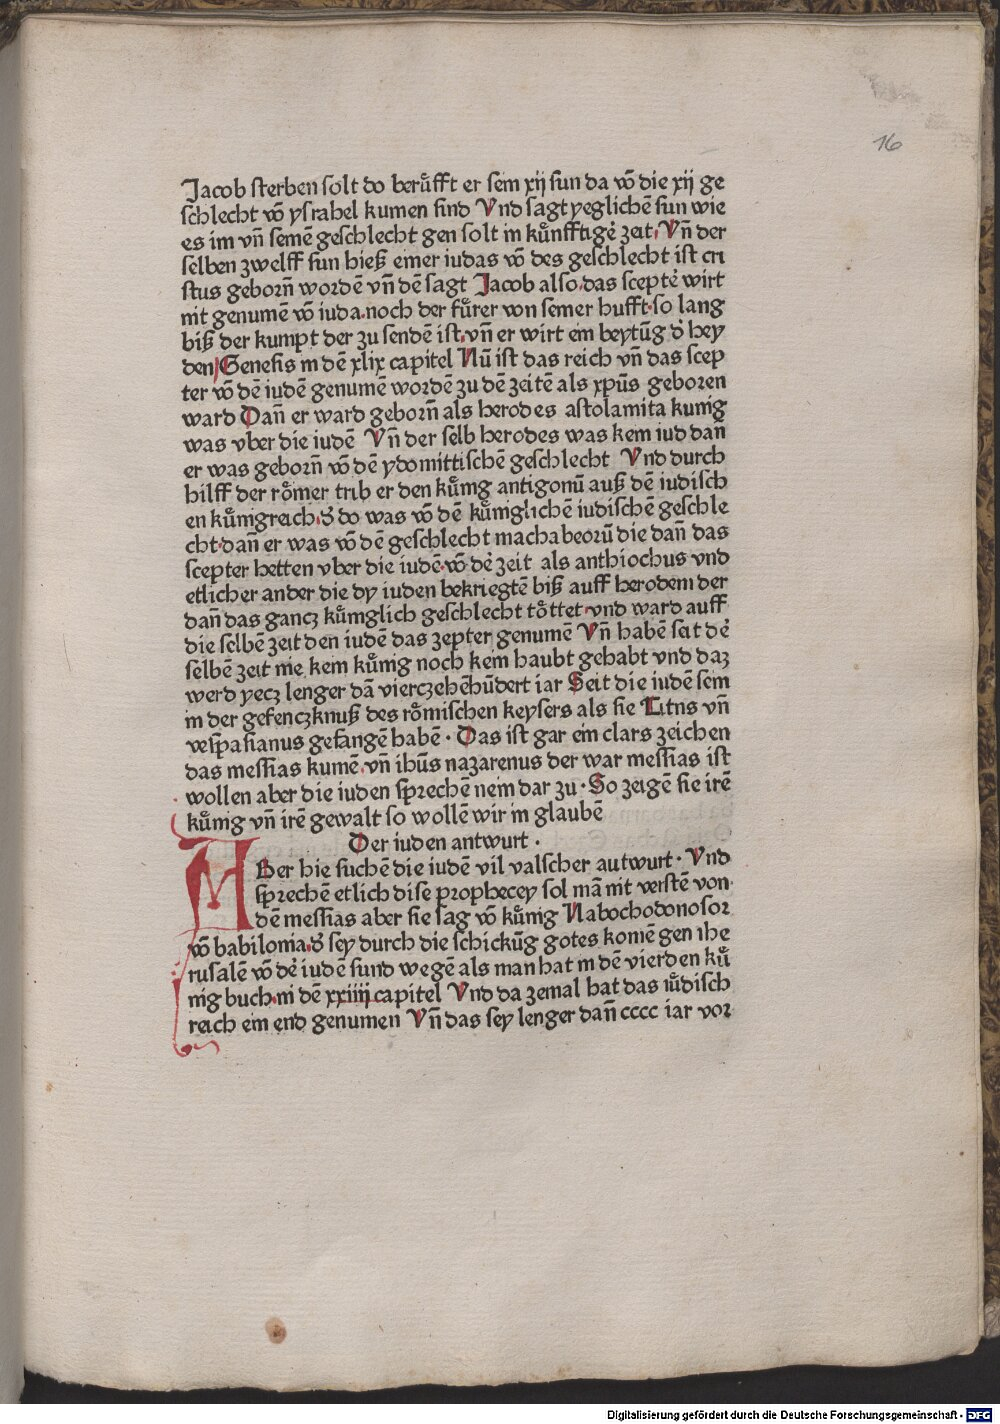 16
Jacob sterben solt do berůfft er sein xij sun da võ die xij ge
schlecht võ ysrahel kumen sind Vnd sagt yeglichẽ sun wie
es im vñ seinẽ geschlecht gen solt in kůnfftigẽ zeit, Vñ der
selben zwelff sun hieß einer iudas võ des geschlecht ist cri
stus geborñ wordẽ vñ dẽ sagt Jacob also, das sceptẽ wirt
nit genumẽ võ iuda. noch der fůrer von seiner hufft. so lang
biß der kumpt der zu sendẽ ist, vñ er wirt ein beytũg d' hey
den, Genesis in dẽ xlix capitel Nũ ist das reich vñ das scep
ter võ dẽ iudẽ genumẽ wordẽ zu dẽ zeitẽ als xpũs geboren
ward Dañ er ward geborñ als herodes astolamita kunig
was vber die iudẽ Vñ der selb herodes was kein iud dañ
er was geborñ võ dẽ ydomittischẽ geschlecht Vnd durch
hilff der rőmer trib er den kůnig antigonũ auß dẽ iudisch
en kůnigreich, d' do was võ dẽ kůniglichẽ iudischẽ geschle
cht. dañ er was võ dẽ geschlecht machabeorũ die dañ das
scepter hetten vber die iudẽ. võ dẽ zeit als anthiochus vnd
etlicher ander die dy iuden bekriegtẽ biß auff herodem der
dañ das gancz kůniglich geschlecht tőttet, vnd ward auff
die selbẽ zeit den iudẽ das zepter genumẽ Vñ habẽ seit dẽ
selbẽ zeit nie kein kůnig noch kein haubt gehabt vnd daz
werd yecz lenger dã vierczehẽhũdert iar Seit die iudẽ sein
in der gefenczknuß des rőmischen keysers als sie Titns vñ
vespasianus gefangẽ habẽ . Das ist gar ein clars zeichen
das messias kumẽ, vñ ihũs nazarenus der war messias ist
wollen aber die iuden sprechẽ nein dar zu . So zeigẽ sie irẽ
kůnig vñ irẽ gewalt so wollẽ wir in glaubẽ
Der iuden antwurt .
ABer hie suchẽ die iudẽ vil valscher autwurt . Vnd
sprechẽ etlich dise prophecey sol mã nit verstẽ von
dẽ messias aber sie sag võ kůnig Nabochodonosor
võ babilonia, d' sey durch die schickũg gotes komẽ gen ihe
rusalẽ võ dẽ iudẽ sund wegẽ als man hat in dẽ vierden ků
nig buch. in dẽ xxiiij capitel Vnd da zemal hat das iůdisch
reich ein end genumen Vñ das sey lenger dañ cccc iar vor
Digitalisierung gefördert durch die Deutsche Forschungsgemeinschaft - DFG